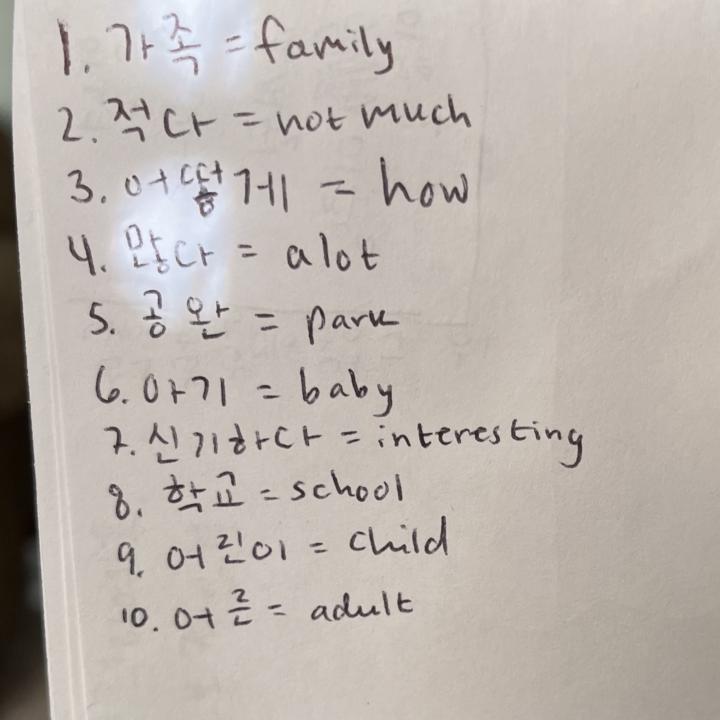 1. 가족 = family
2. 적다 = not much
3. 어떻게 = how
4. 많다 = alot
5. 공완 = park
6. 아기 = baby
7. 신기하다 = interesting
8. 학교 = school
9. 어린이 = child
10. 어른 = adult